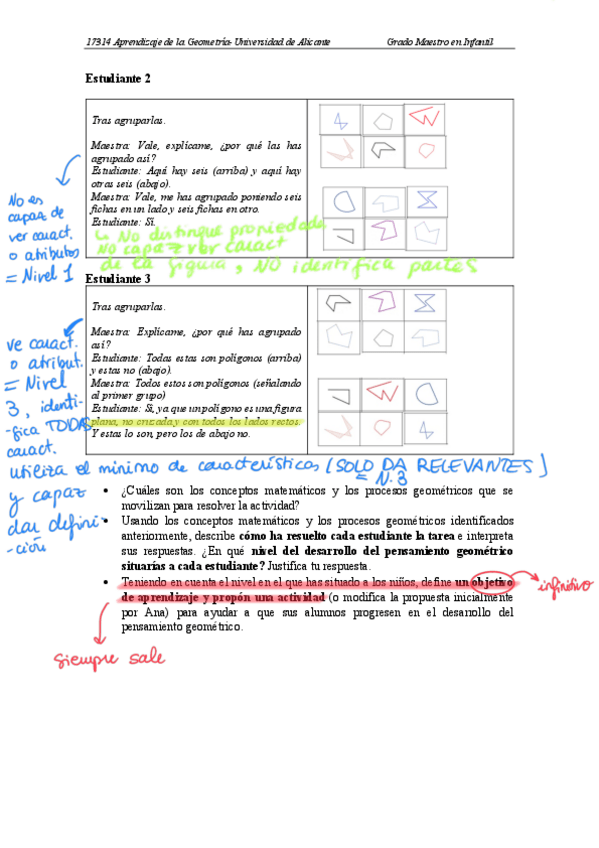 17314 Aprendizaje de la Geometría- Universidad de Alicante Grado Maestro en Infantil
Estudiante 2
Tras agruparlas.
Maestra: Vale, explícame, ¿por qué las has
agrupado así?
Estudiante: Aquí hay seis (arriba) y aquí hay
otras seis (abajo).
Maestra: Vale, me has agrupado poniendo seis
fichas en un lado y seis fichas en otro.
Estudiante: Sí.
No es
capaz de
ver caract.
o atributos
= Nivel 1
↳ No distingue propiedades
No capaz ver caract
de la figura, NO identifica partes
Estudiante 3
Tras agruparlas.
Maestra: Explícame, ¿por qué has agrupado
así?
Estudiante: Todas estas son polígonos (arriba)
y estas no (abajo).
Maestra: Todos estos son polígonos (señalando
al primer grupo)
Estudiante: Si, ya que un polígono es una figura
plana, no cruzada y con todos los lados rectos.
Y estas lo son, pero los de abajo no.
ve caract.
o atribut.
= Nivel
3, identi-
-fica TODAS
caract.
utiliza el mínimo de características (SOLO DA RELEVANTES)
= N.3
y capaz
dar defini-
-ción
• ¿Cuáles son los conceptos matemáticos y los procesos geométricos que se
movilizan para resolver la actividad?
• Usando los conceptos matemáticos y los procesos geométricos identificados
anteriormente, describe cómo ha resuelto cada estudiante la tarea e interpreta
sus respuestas. ¿En qué nivel del desarrollo del pensamiento geométrico
situarías a cada estudiante? Justifica tu respuesta.
• Teniendo en cuenta el nivel en el que has situado a los niños, define un objetivo
de aprendizaje y propón una actividad (o modifica la propuesta inicialmente
por Ana) para ayudar a que sus alumnos progresen en el desarrollo del
pensamiento geométrico.
infinitivo
siempre sale